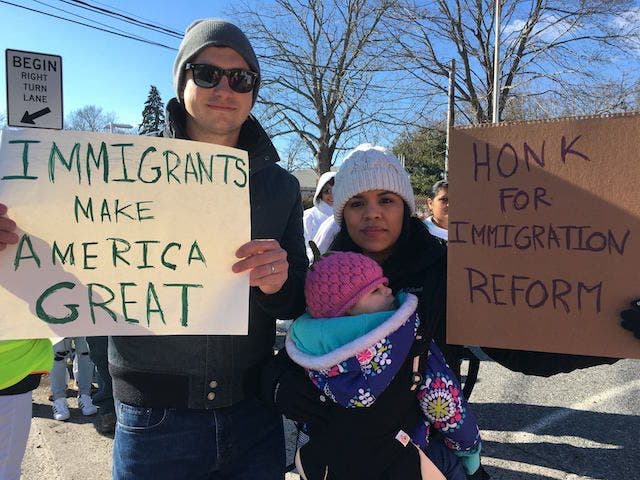 BEGIN
RIGHT
TURN
LANE
IMMIGRANTS
MAKE
AMERICA
GREAT
HONK
FOR
IMMIGRATION
REFORM